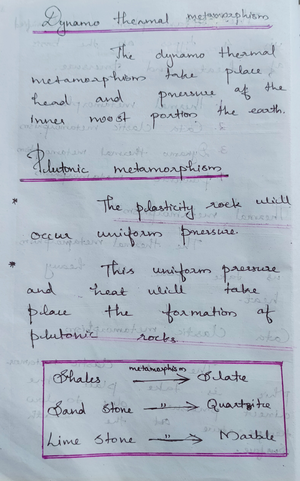 Dynamo thermal metamorphism
The dynamo thermal
metamorphism take place
head and pressure of the
inner most portion the earth.
Plutonic metamorphism
* The plasticity rock will
occur uniform pressure.
* This uniform pressure
and heat will take
place the formation of
plutonic rocks
metamorphism
Shales → Slate
Sand stone —"→ Quartzite
Lime stone —"→ Marble